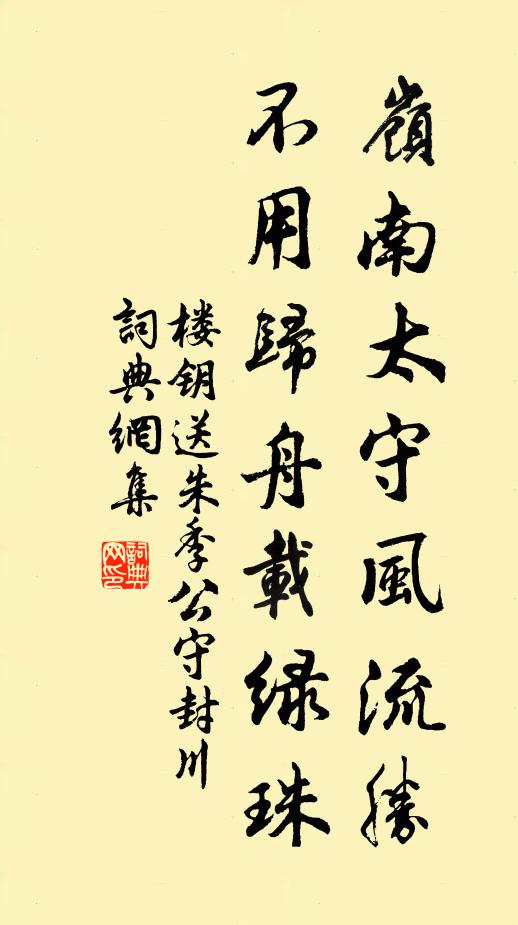 嶺南太守風流勝
不用歸舟載緑珠
楼钥送朱季公守封川
詞典網集
詞典網印